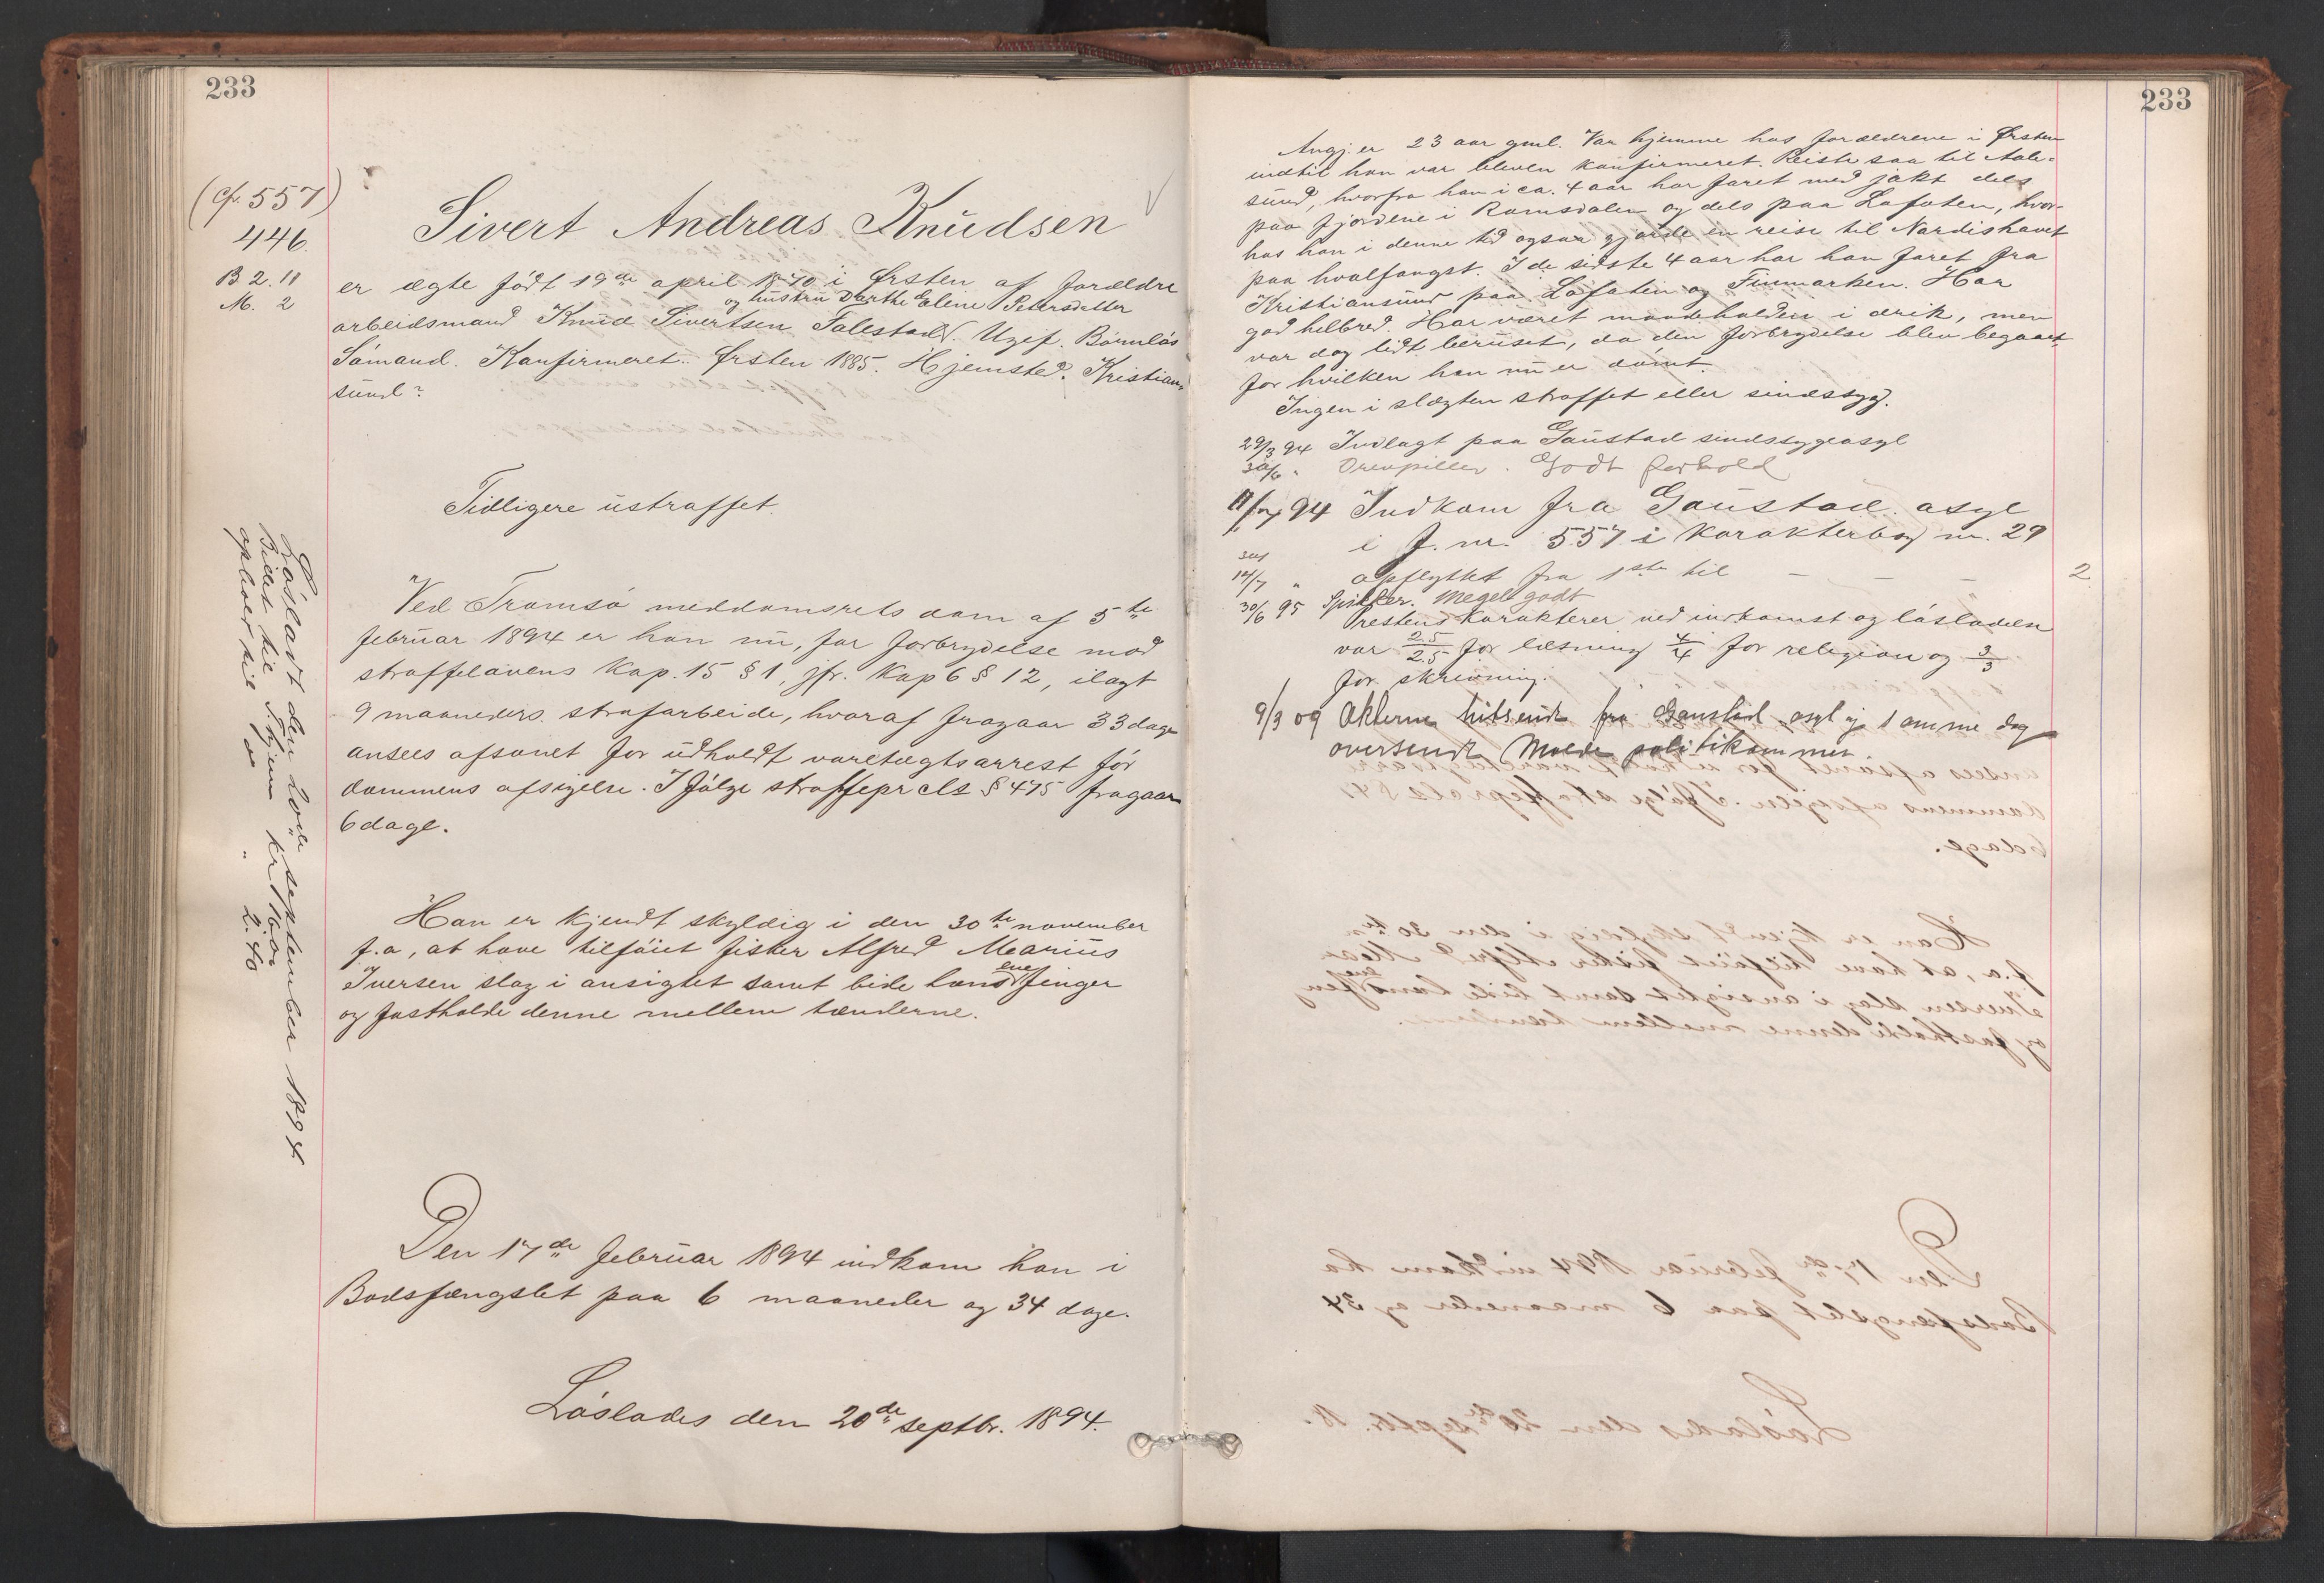 233
(cfr. 557)
446.
B 2. 11
M. 2
Sivert Andreas Knudsen
er ægte født 19de april 1870 i Ørsten af forældre
og hustru Dorthe Elene Petersdatter
arbeidsmand Knud Sivertsen Falestad. Ugif. Barnløs
Sømand. Konfirmeret: Ørsten 1885. Hjemsted: Kristian-
sund?
Tidligere ustraffet.
Ved Tromsø meddomsrets dom af 5te
februar 1894 er han nu, for forbrydelse mod
straffelovens Kap. 15 § 1, jfr. Kap 6 § 12, ilagt
9 maaneders strafarbeide, hvoraf fragaar 33 dage
ansees afsonet for udholdt varetægtsarrest før
dommens afsigelse. I følge straffeprcls § 475 fragaar
6 dage.
Han er kjendt skyldig i den 30te november
f.a, at have tilføiet fisker Alfred Marius
Iversen slag i ansigtet samt bide hans ene finger
og fastholde denne mellem tænderne.
Den 17de februar 1894 indkom han i
Bodsfængslet paa 6 maaneder og 34 dage.
Løslades den 20de septbr. 1894.
Løsladt den 20de september 1894
Bidrt til hjem kr 16.00
ophold til do " 2.40
233
Angj. er 23 aar gml. Var hjemme hos forældrene i Ørsten
indtil han var bleven konfirmeret. Reiste saa til Aale-
sund, hvorfra han i ca. 4 aar har faret med jakt dels
paa fjordene i Romsdalen og dels paa Lofoten, hvor-
hos han i denne tid ogsaa gjorde en reise til Nordishavet
paa hvalfangst. I de sidste 4 aar har han faret fra
Kristiansund paa Lofoten og Finmarken. Har
god helbred. Har været maadeholden i drik, men
var dog lidt beruset, da den forbrydelse blev begaaet,
for hvilken han nu er dømt.
Ingen i slægten straffet eller sindssyg.
29/3 94 Indlagt paa Gaustad sindssygeasyl
30/6 " Drevpiller. Godt forhold
11/7 94 Indkom fra Gaustad asyl
i f. nr. 557 i karakterbog nr. 29
14/7 " opflyttet fra 1ste til — — — 2
30/6 95 Spikker. Meget godt
Prestens karakterer ved indkomst og løsladelse
var 2.5/2.5 for læsning 4/4 for religion og 3/3
for skrivning.
9/3 09 Akterne hitsendt fra Gaustad asyl og samme dag
oversendt Molde politikammer.